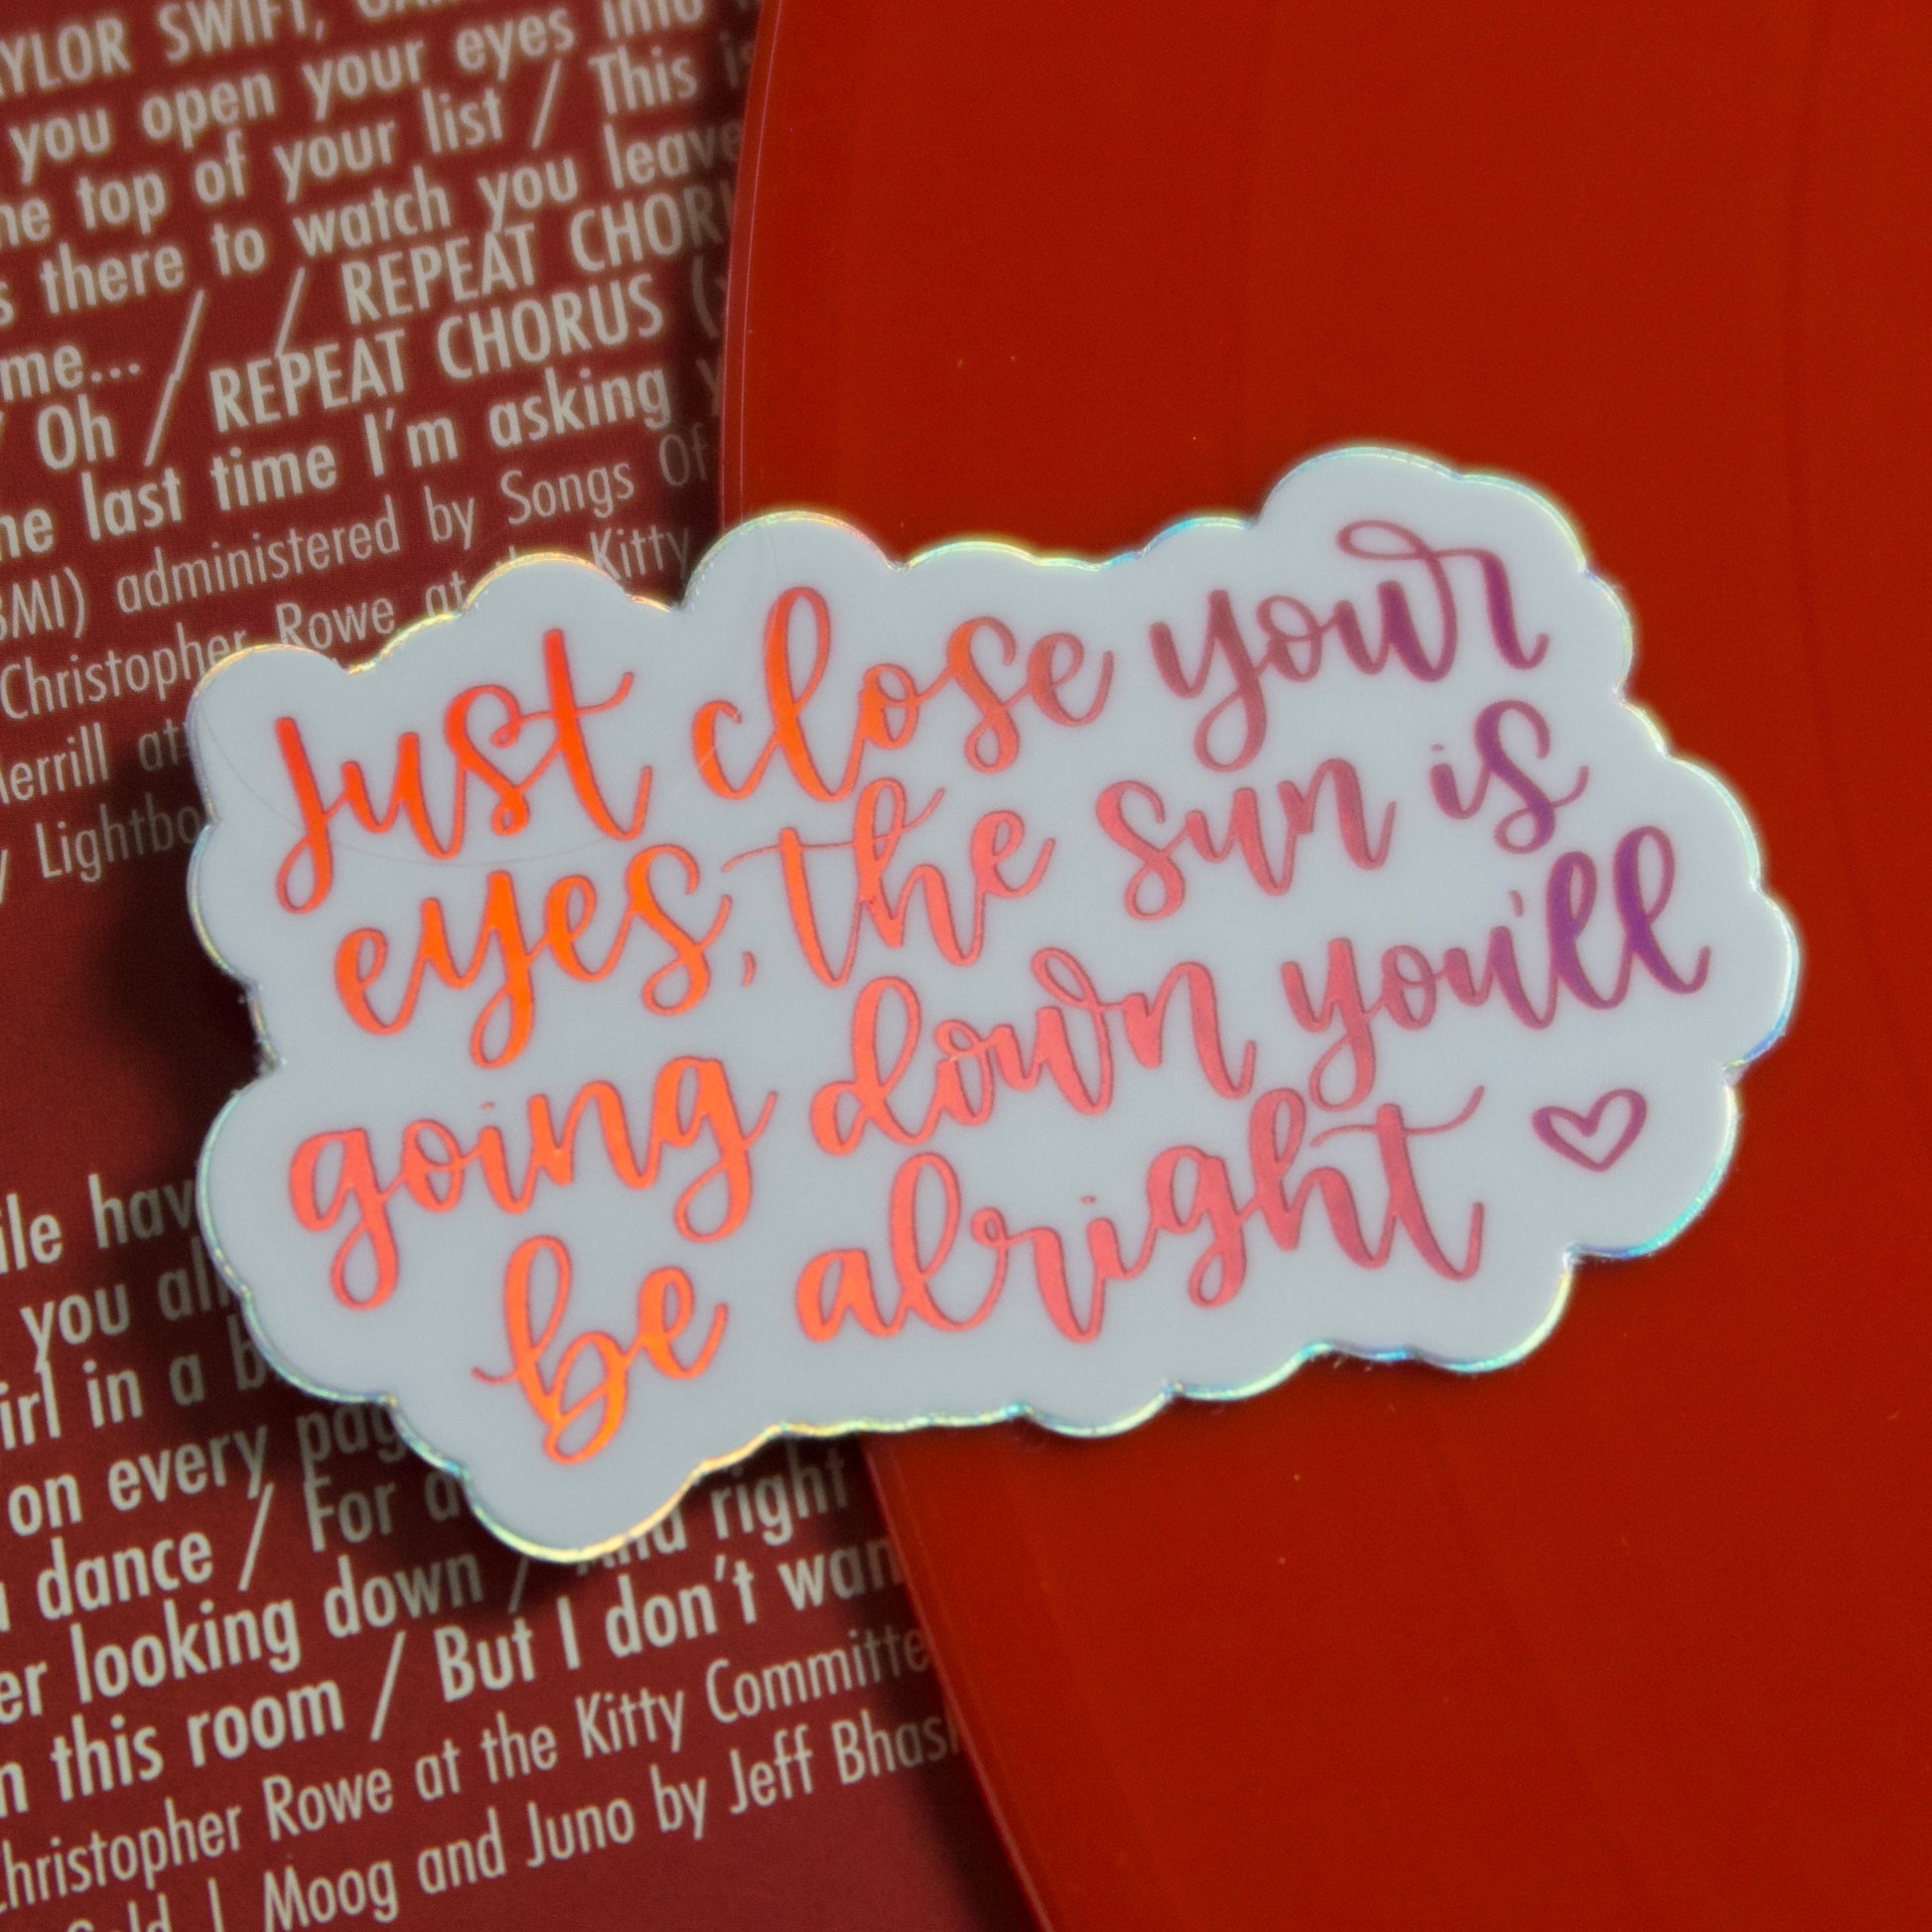 TAYLOR SWIFT,
you open your eyes into
the top of your list / This is
there to watch you leave
me... / / REPEAT CHORUS
Oh / REPEAT CHORUS
the last time I'm asking
BMI) administered by Songs Of
Christopher Rowe at the Kitty
Merrill at
Lightbo
Just close your
eyes, the sun is
going down you'll
be alright
hav
you all
girl in a b
on every pag
dance / For a
looking down / And right
this room / But I don't wan
Christopher Rowe at the Kitty Committe
Moog and Juno by Jeff Bhas